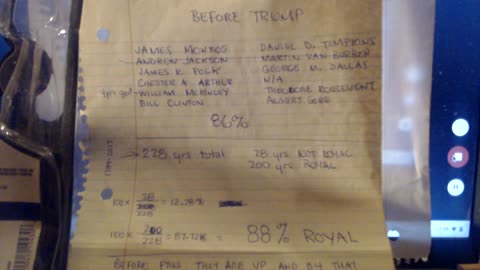 BEFORE TRUMP
JAMES MONROE DANIEL D. TOMPKINS
ANDREW JACKSON MARTIN VAN BUREN
JAMES K. POLK GEORGE M. DALLAS
CHESTER A. ARTHUR N/A
4yrs get WILLIAM McKINLEY THEODORE ROOSEVELT
BILL CLINTON ALBERT GORE
86%
1789-2017
228 yrs total 28 yrs NOT ROYAL
200 yrs ROYAL
100 x 28/228 = 12.28%
100 x 200/228 = 87.72% = 88% ROYAL
BEFORE THEY ARE UP AND BY THAT